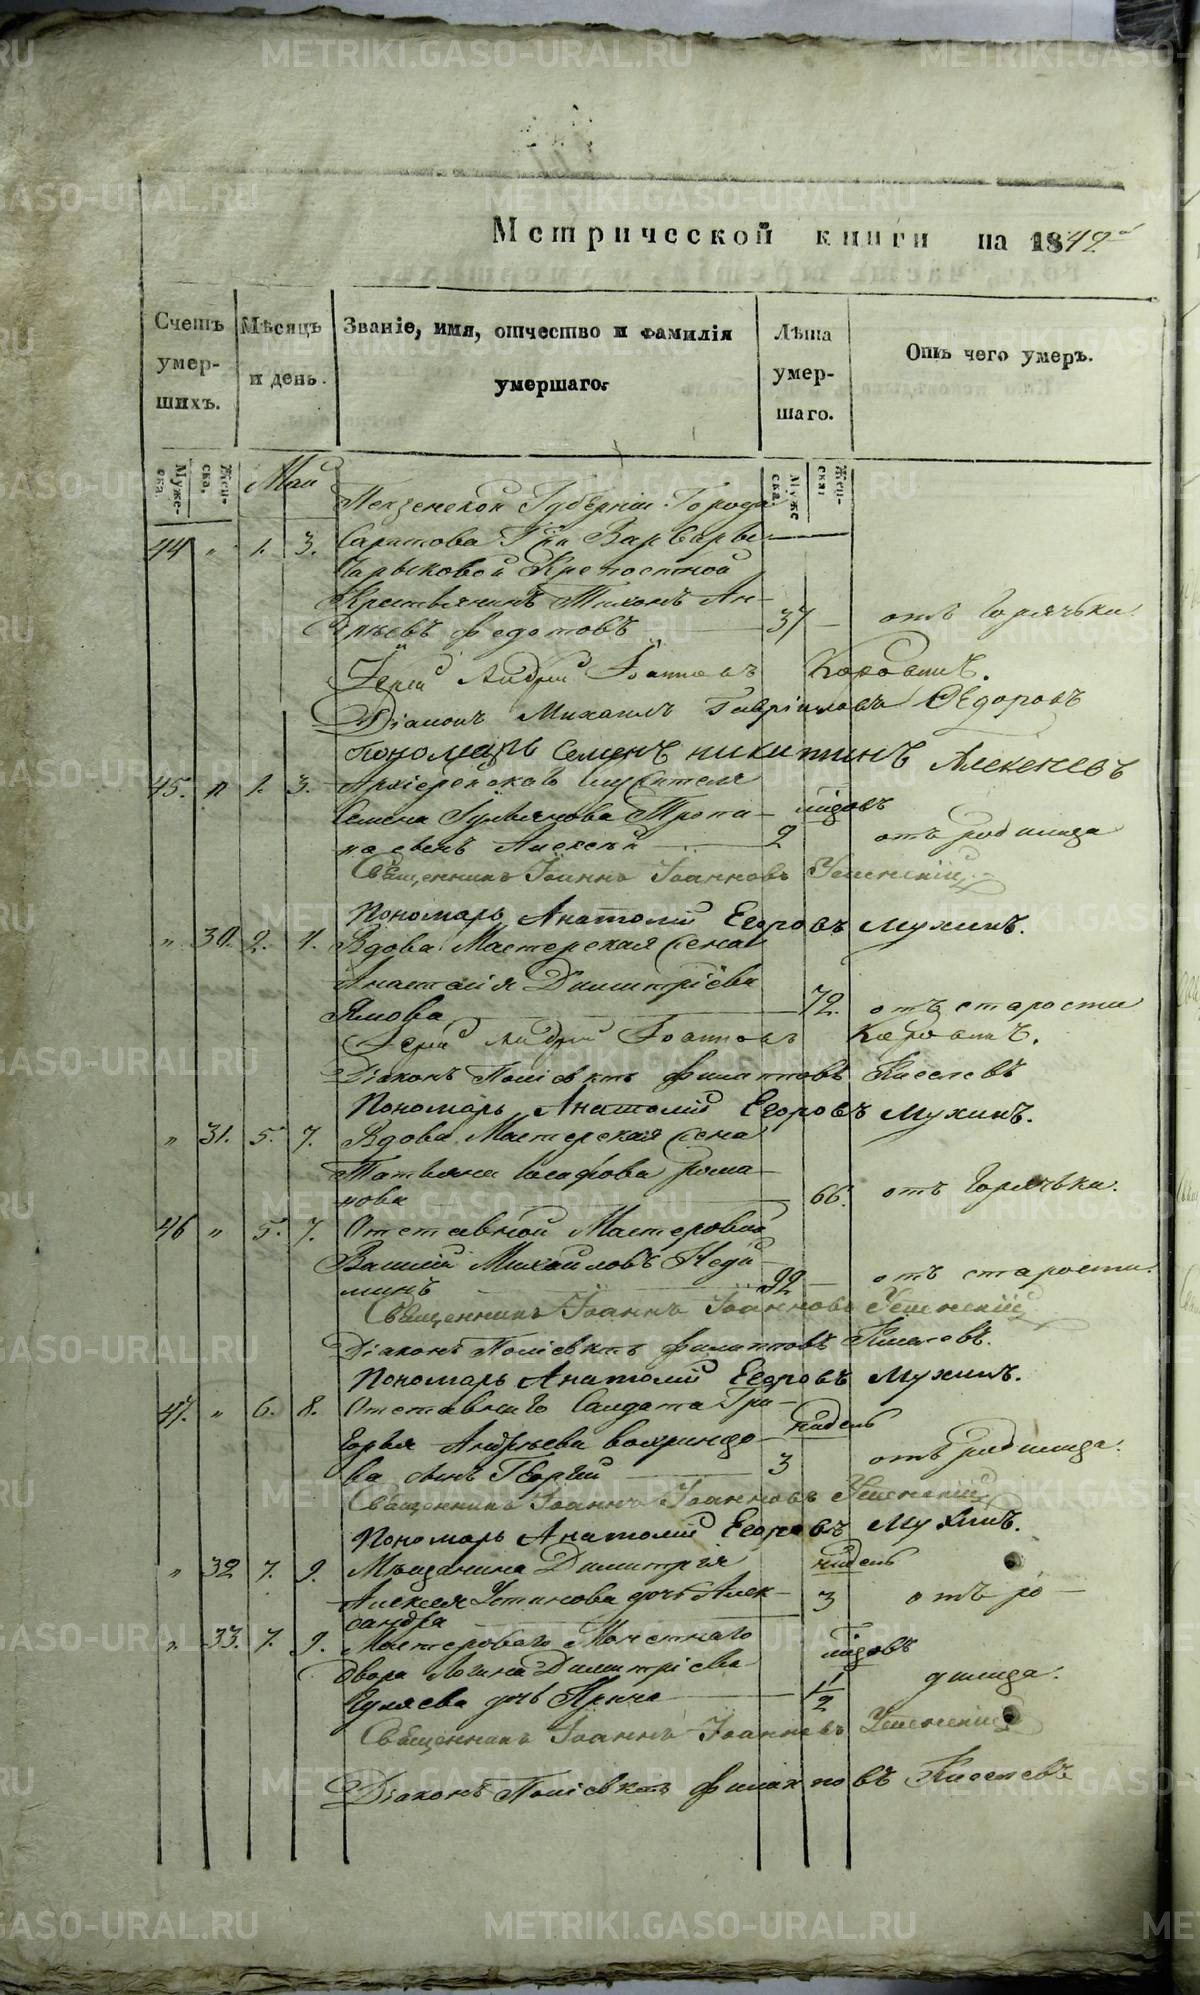 Метрической книги на 1842й
Счетъ умершихъ.
Мѣсяцъ и день.
Званіе, имя, отчество и фамилія умершаго.
Лѣта умершаго.
Отъ чего умеръ.
Мужеска.
Женска.
Май
Муже ска.
Женска:
Пензенской Губерніи Города
44 " 1. 3. Саратова Гжи Варвары
Чарыковой Крепостной
Крестьянинъ Тихонъ Ан-
дреевъ Федотовъ 37 — отъ Горячьки.
Іерей Андрей Іоанновъ Коровинъ.
Діаконъ Михаилъ Гавріиловъ Федоровъ
Пономарь Семенъ Никитинъ Алексеевъ
45. " 1. 3. Архіерейскаго служителя
Семена Гурьянова Тропи-
на сынъ Алексей мѣсяцовъ 2 отъ родимца
Священникъ Іоаннъ Іоанновъ Успенскій
Пономарь Анатолій Егоровъ Мухинъ.
" 30. 2. 4. Вдова Мастерская жена
Анастасія Димитріева
Ямова 72. отъ старости
Іерей Андрей Іоанновъ Коровинъ.
Діаконъ Поліевктъ Филипповъ Киселевъ
Пономарь Анатолій Егоровъ Мухинъ.
" 31. 5. 7. Вдова Мастерская жена
Татьяна Іосафова Рома-
нова 66. отъ Горячьки.
46 " 5. 7. Отставной Мастеровой
Василій Михайловъ
92 — отъ старости.
Священникъ Іоаннъ Іоанновъ Успенскій
Діаконъ Поліевктъ Филипповъ Киселевъ.
Пономарь Анатолій Егоровъ Мухинъ.
47. " 6. 8. Отставнаго Солдата Гри-
горья Андреева
ва сынъ Георгій недель 3 отъ родимца.
Священникъ Іоаннъ Іоанновъ Успенскій
Пономарь Анатолій Егоровъ Мухинъ.
" 32 7. 9. Мѣщанина Димитрія
Алексея Устинова дочь Алек-
сандра недель 3 отъ ро-
" 33. 7. 9. Мастероваго Монетнаго
двора Логина Димитріева
Гуляева дочь Ирина мѣсяцовъ 1½ димца.
Священникъ Іоаннъ Іоанновъ Успенскій
Діаконъ Поліевктъ Филиповъ Киселевъ
METRIKI.GASO-URAL.RU